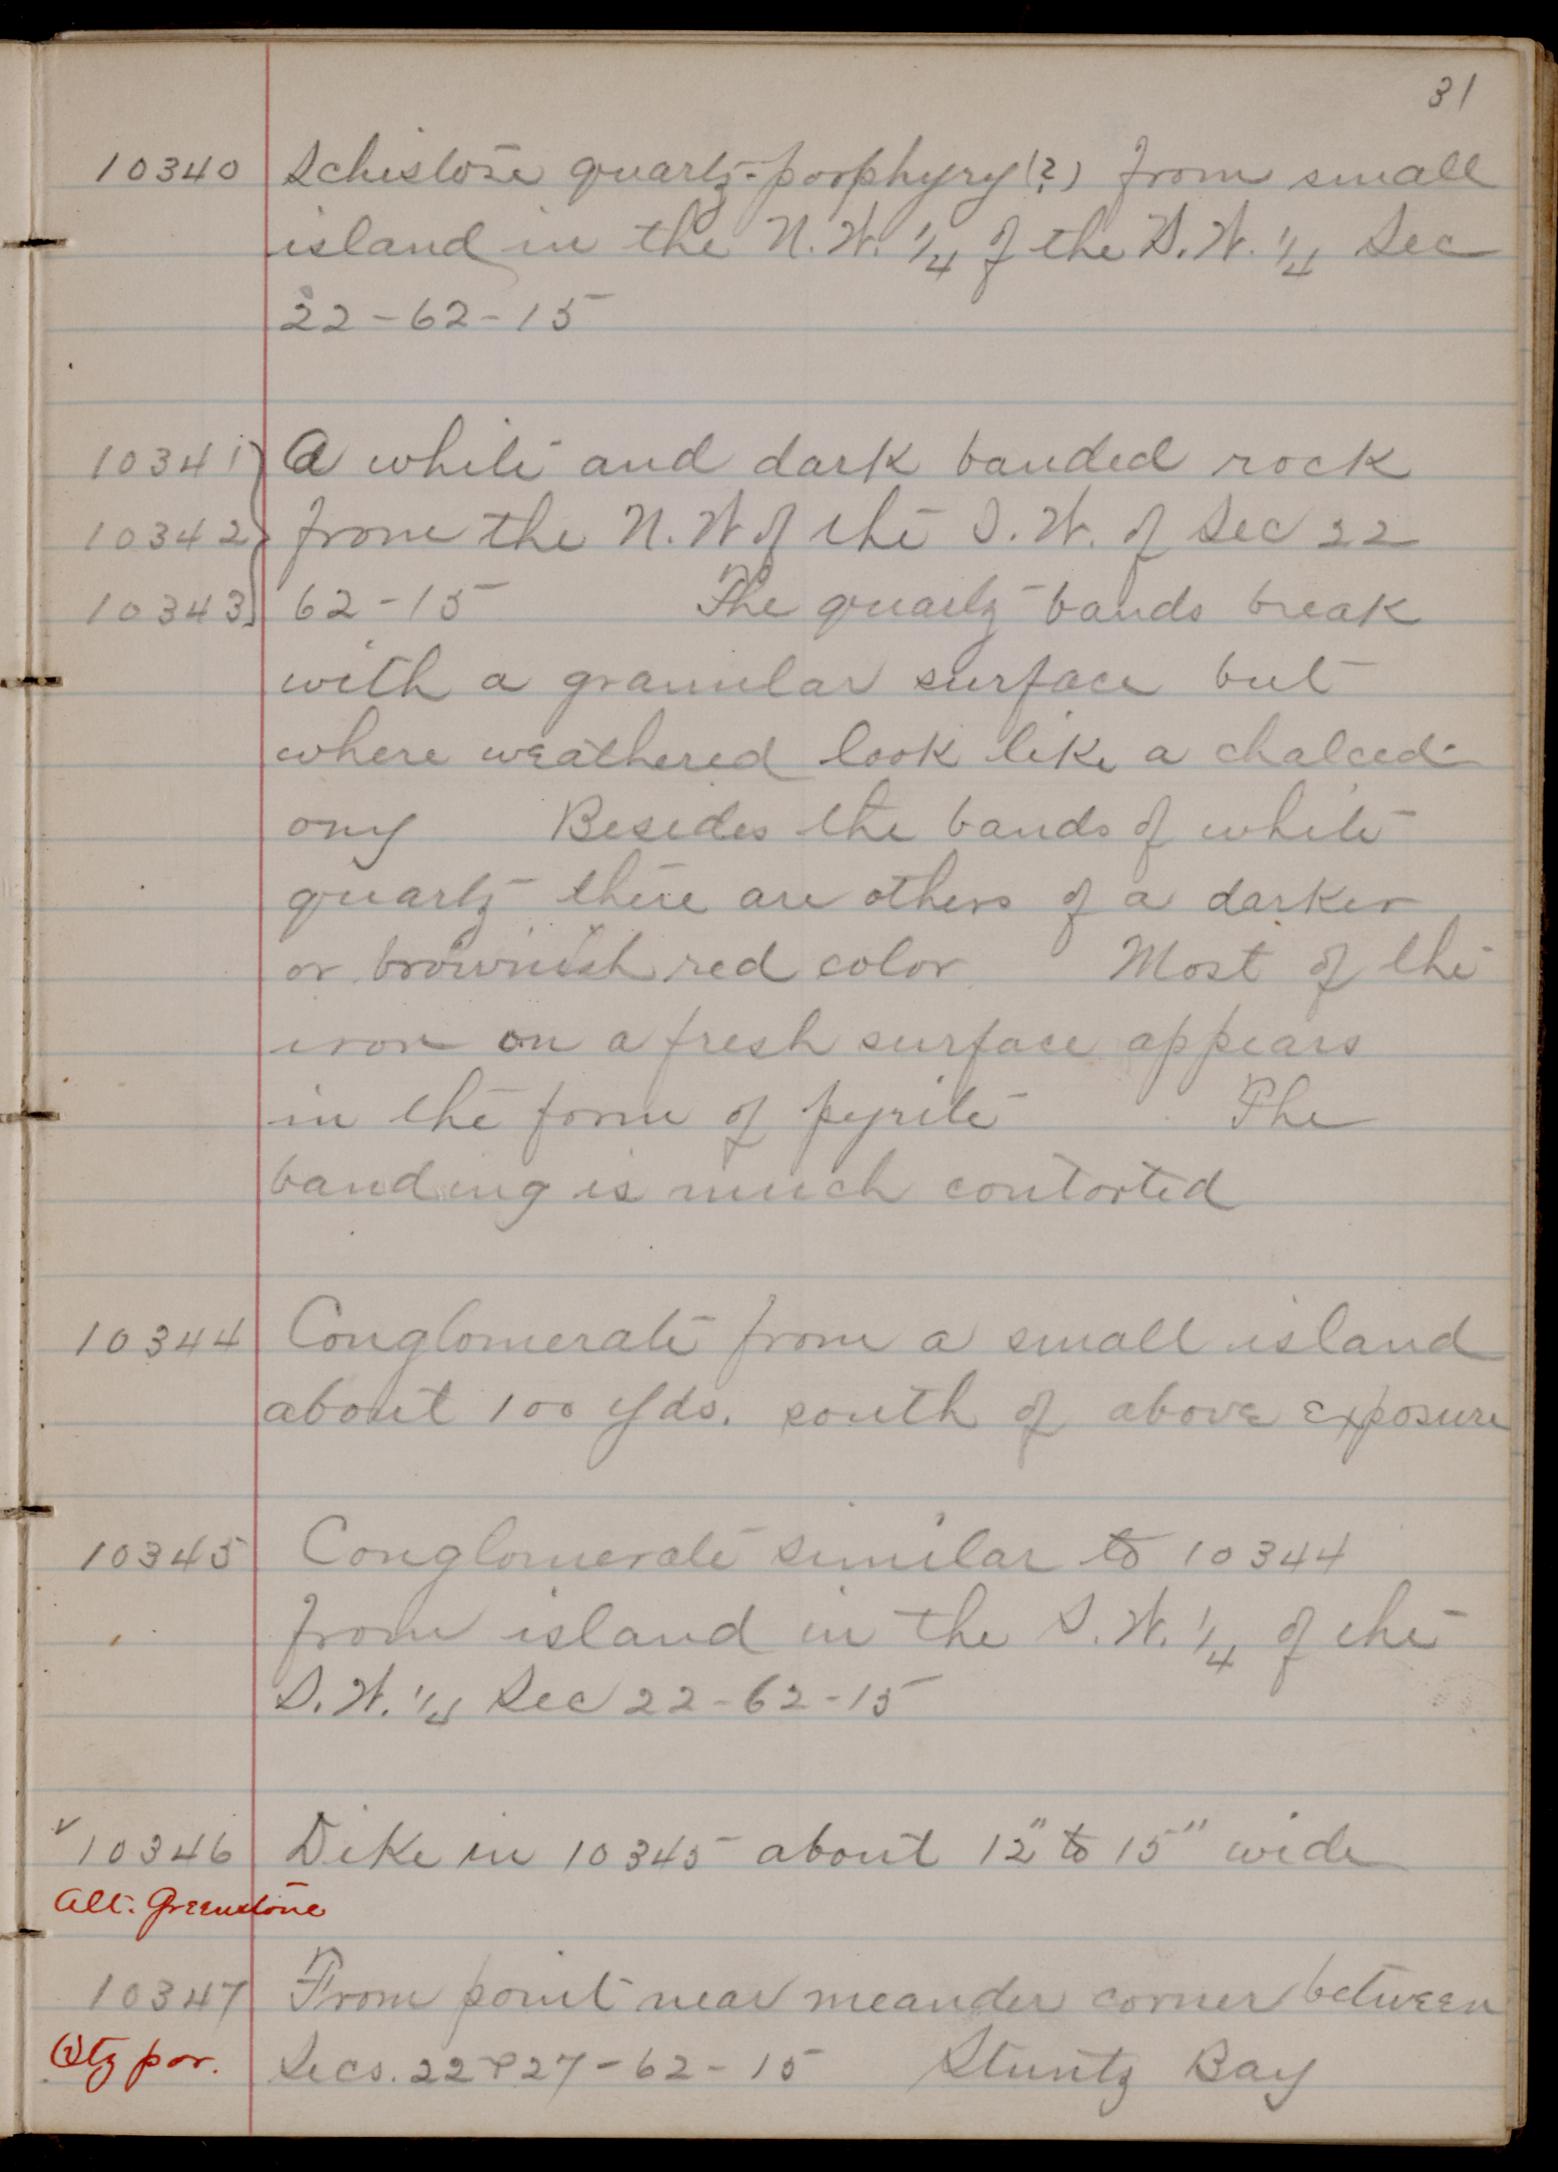 31
10340 Schistose quartz-porphyry(?) from small
island in the N.W. 1/4 of the S.W. 1/4 Sec
22-62-15
10341 } A white and dark banded rock
10342 } from the N.W of the S.W. of Sec 22
10343 } 62-15 The quartz bands break
with a granular surface but
where weathered look like a chalced-
ony Besides the bands of white
quartz there are others of a darker
or brownish red color Most of the
iron on a fresh surface appears
in the form of pyrite The
banding is much contorted
10344 Conglomerate from a small island
about 100 yds. south of above exposure
10345 Conglomerate similar to 10344
from island in the S.W. 1/4 of the
S.W. 1/4 Sec 22-62-15
✓ 10346 Dike in 10345 about 12" to 15" wide
Alt. Greenstone
10347 From point near meander corner between
Qtz por. Secs. 22 & 27-62-15 Stuntz Bay